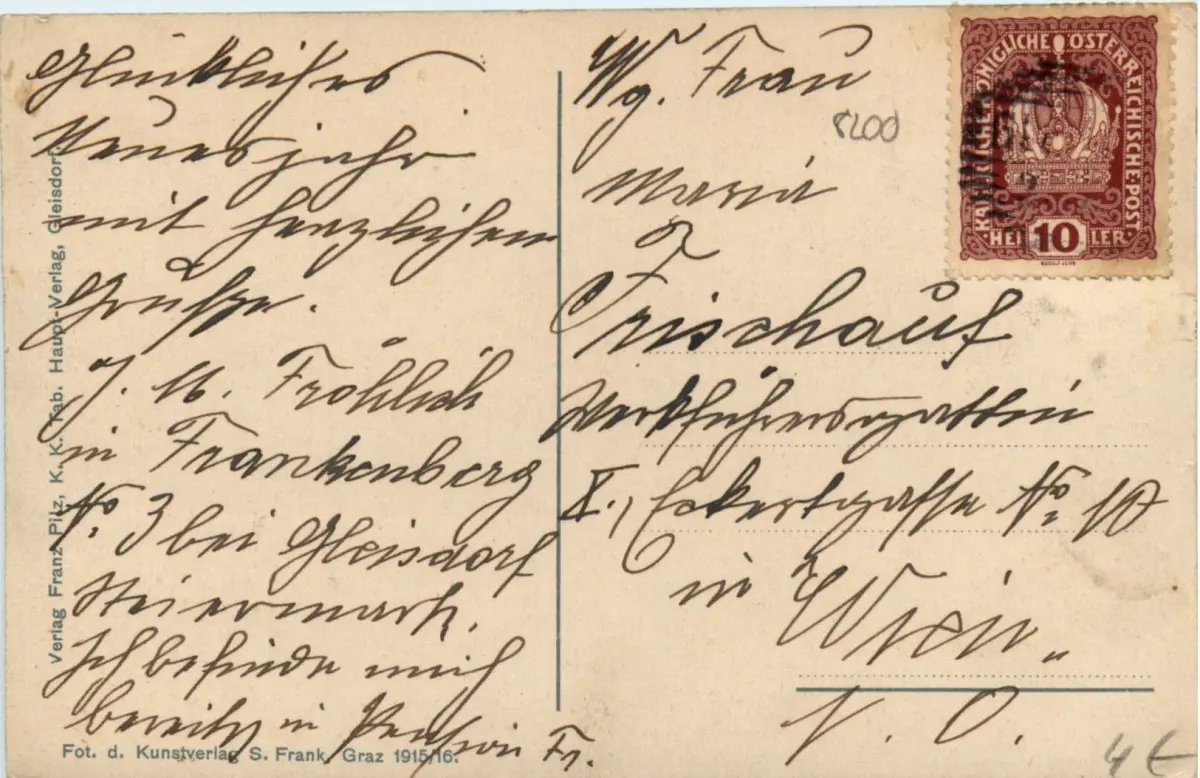 Glückliches
Neuesjahr
mit herzlichen
Grüßen.
J. M. Fröhlich
in Frankenberg
No 3 bei Gleisdorf
Steiermark.
Ich befinde mich
bereits in Pension Fr.
Verlag Franz Pilz, K. K. Tab. Haupt-Verlag, Gleisdorf.
Fot. d. Kunstverlag S. Frank, Graz 1915/16.
Wg. Frau
8200
Maria
Frischauf
Werkführersgattin
X., Eckertgasse No. 10
in Wien„
N. O.
KAISERLICHE KÖNIGLICHE ÖSTERREICHISCHE POST
HELLER
10
4 €